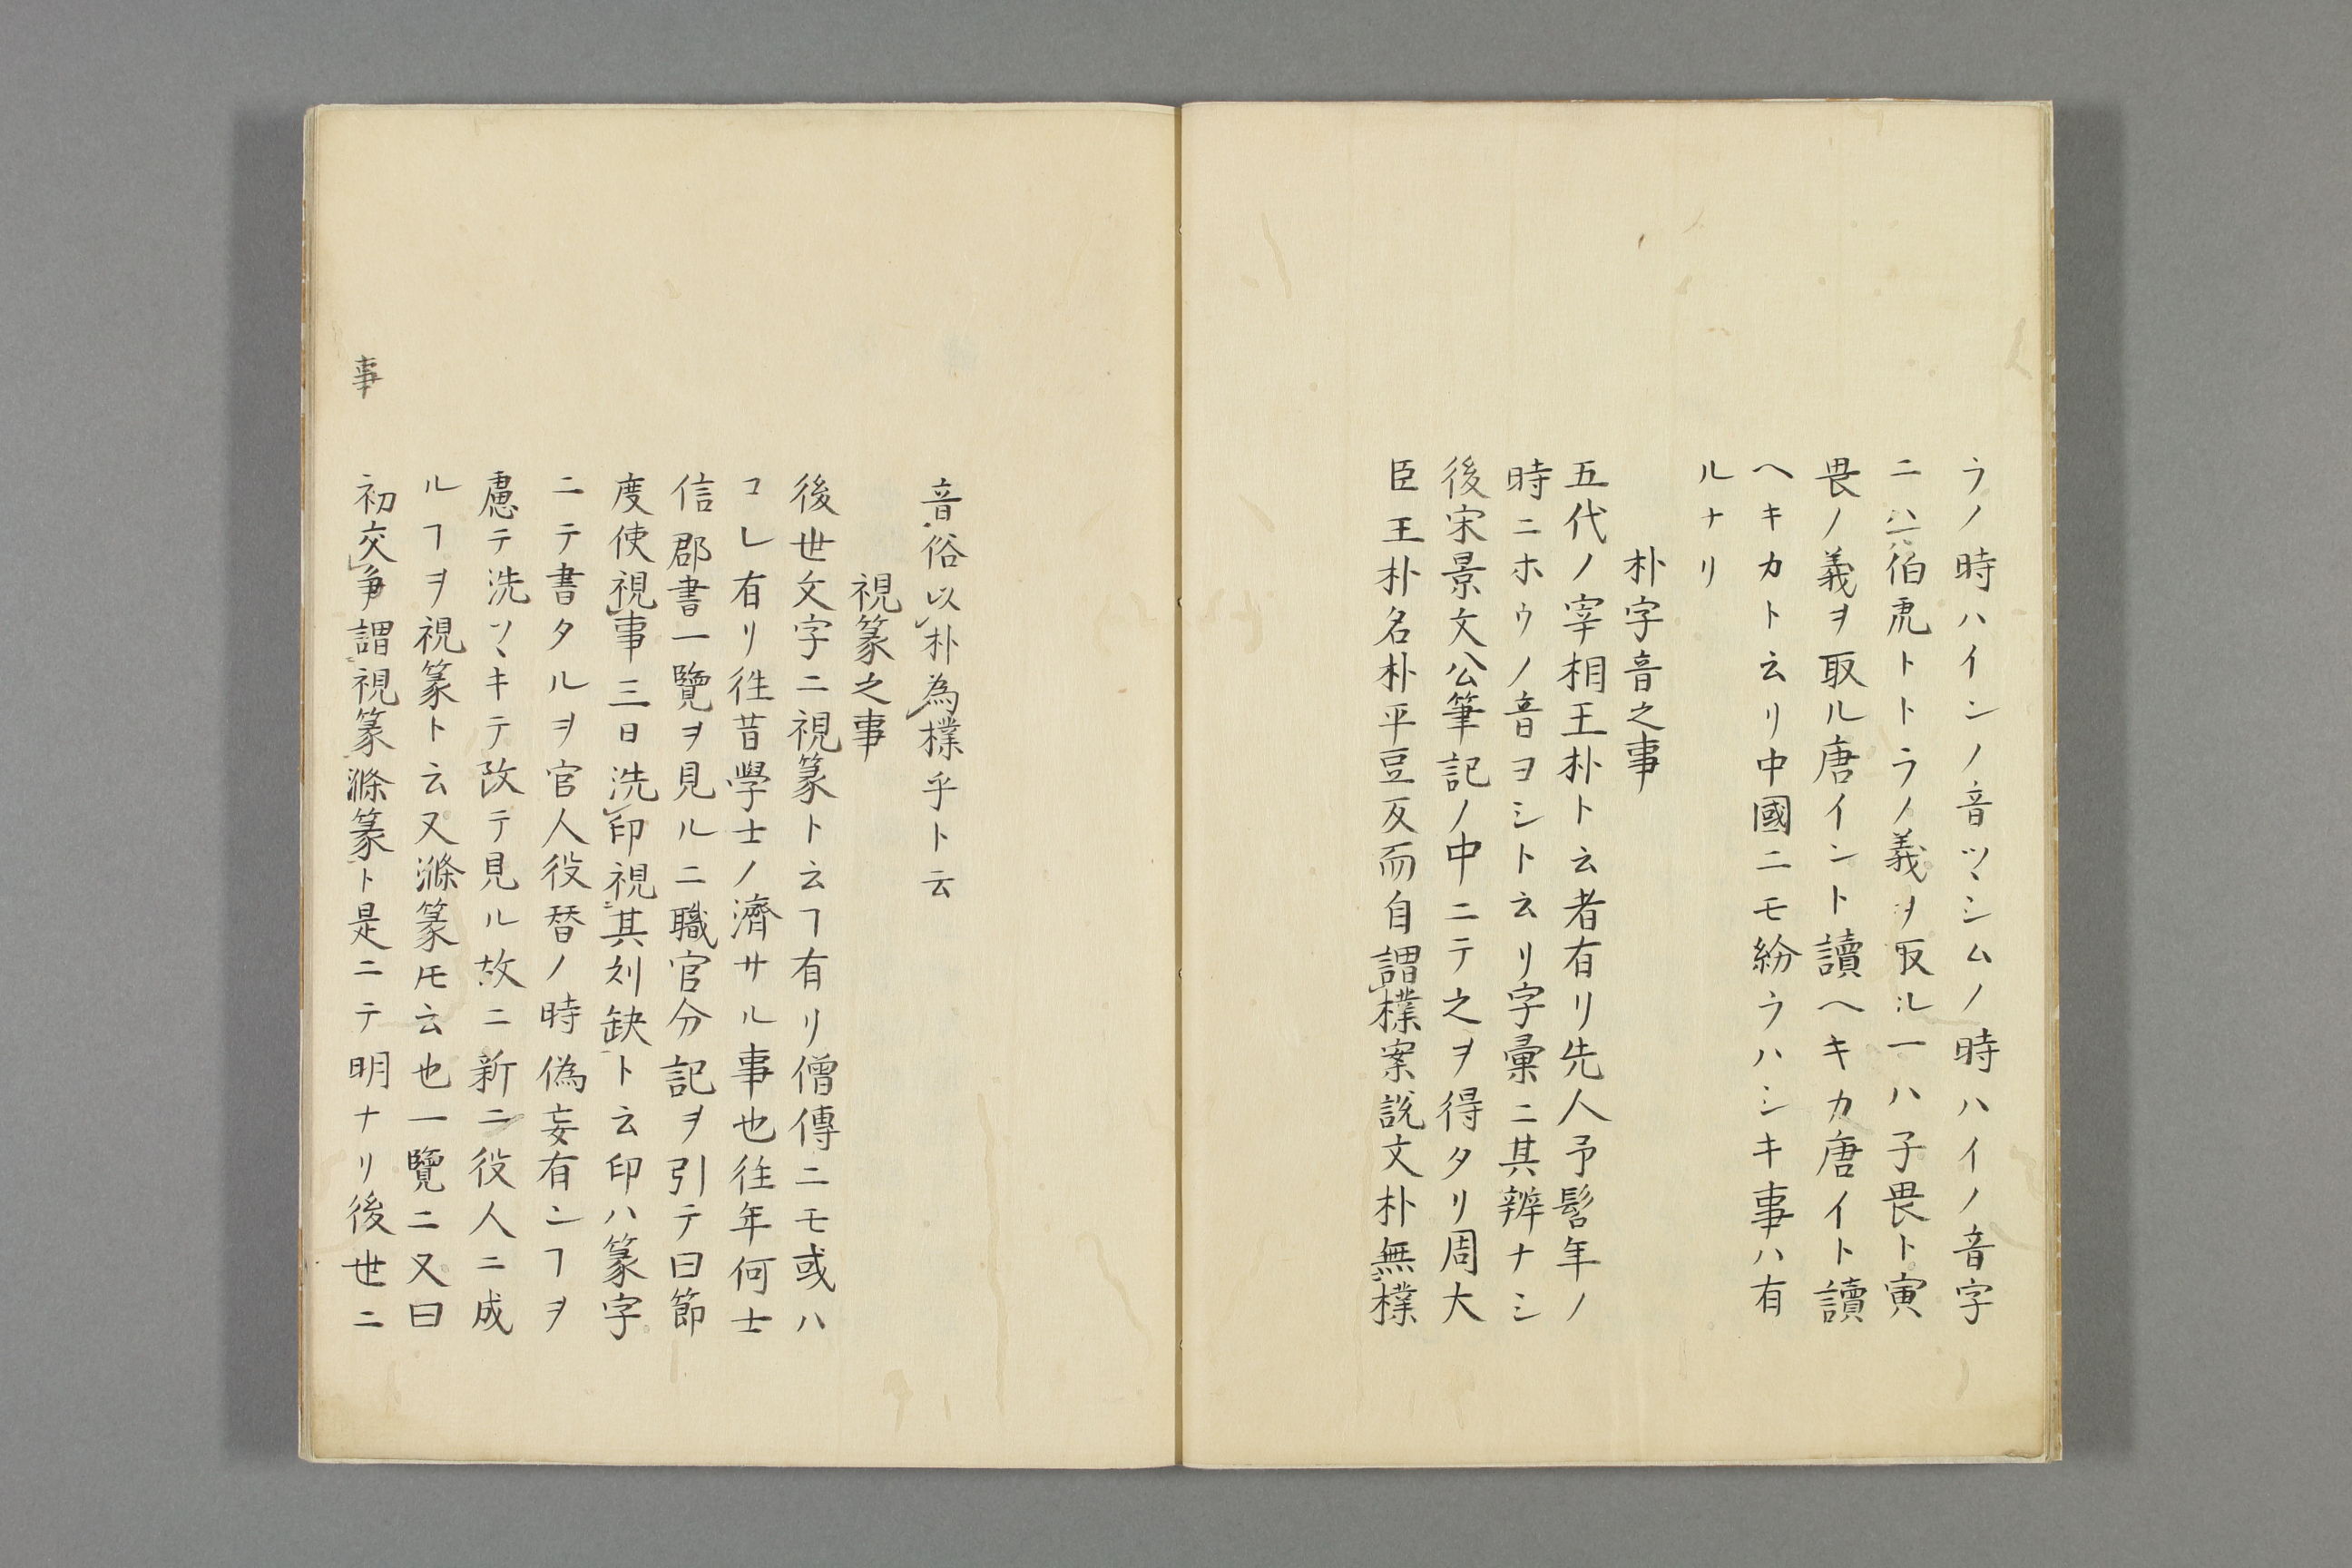 ラノ時ハインノ音ツヽシムノ時ハイノ音字
ニハ二伯虎トトラノ義ヲ取ル一ハ子畏ト寅
畏ノ義ヲ取ル唐イント讀ヘキカ唐イト讀
ヘキカト云リ中國ニモ紛ラハシキ事ハ有
ルナリ
朴字音之事
五代ノ宰相王朴ト云者有リ先人予髫年ノ
時ニホウノ音ヨシト云リ字彙ニ其辨ナシ
後宋景文公筆記ノ中ニテ之ヲ得タリ周大
臣王朴名朴平豆反而自謂樸案説文朴無樸
音俗以朴為樸乎ト云
視篆之事
後世文字ニ視篆ト云ヿ有リ僧傳ニモ或ハ
コレ有リ徃昔學士ノ濟サル事也往年何士
信郡書一覽ヲ見ルニ職官分記ヲ引テ曰節
度使視事三日洗印視其刓缺ト云印ハ篆字
ニテ書タルヲ官人役替ノ時偽妄有ンヿヲ
慮テ洗ツヽキテ改テ見ル故ニ新ニ役人ニ成
ルヿヲ視篆ト云又滌篆 トモ云也一覽ニ又曰
事
初交爭謂視篆滌篆ト是ニテ明ナリ後世ニ